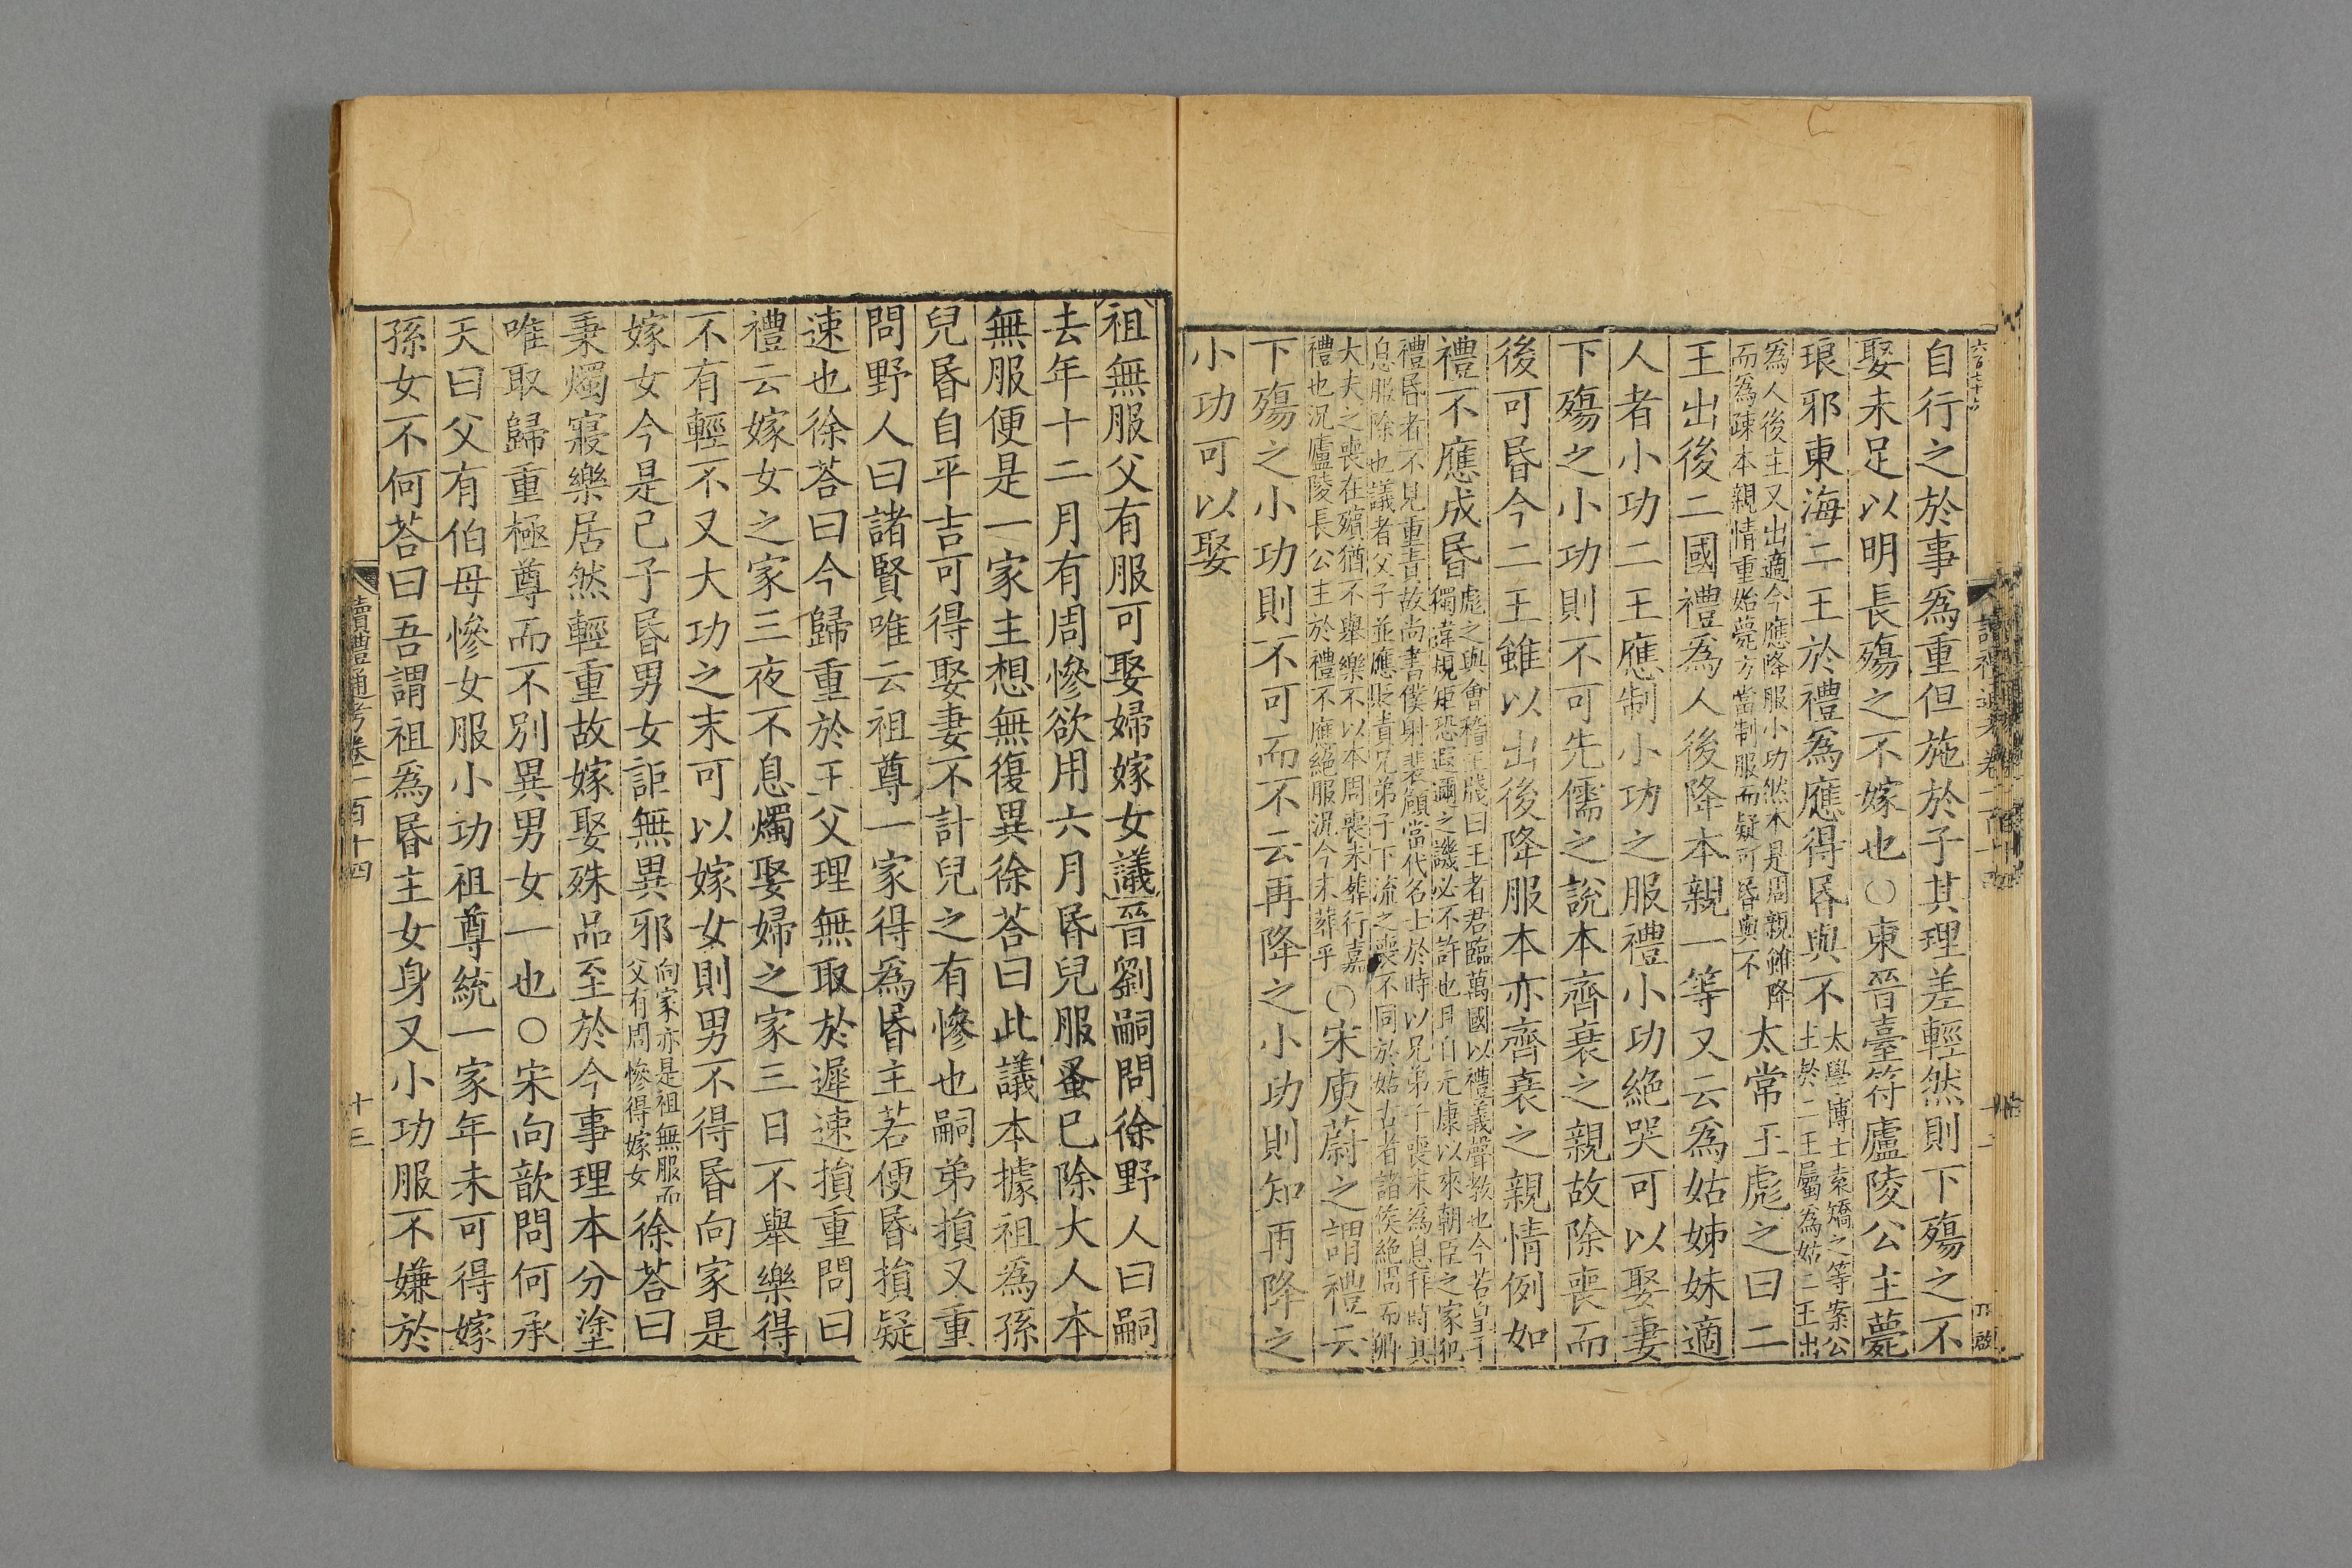 自行之於事為重但施於子其理差輕然則下殤之不
娶未足以明長殤之不嫁也○東晉臺符廬陵公主薨
琅邪東海二王於禮為應得昏與不太學博士索矯之等案公主於二王屬為姑二王出
為人後主又出適今應降服小功然本是周親雖降而為疎本親情重始薨方當制服而疑可昏與不太常王彪之曰二
王出後二國禮為人後降本親一等又云為姑姊妹適
人者小功二王應制小功之服禮小功絕哭可以娶妻
下殤之小功則不可先儒之說本齊衰之親故除喪而
後可昏今二王雖以出後降服本亦齊衰之親情例如
禮不應成昏彪之與會稽王牋曰王者君臨萬國以禮義聲教也今若皇子獨違規矩恐遐邇之譏必不許也且自元康以來朝臣之家犯
禮昏者不見重責故尚書僕射裴頠當代名士於時以兄弟子喪末為息拜時其息服除也議者父子並應貶責兄弟子下流之喪不同於姑古者諸侯絕周而卿
大夫之喪在殯猶不舉樂不以本周喪未葬行嘉禮也況廬陵長公主於禮不應絕服況今未葬乎○宋庾蔚之謂禮云
下殤之小功則不可而不云再降之小功則知再降之
小功可以娶
祖無服父有服可娶婦嫁女議晉劉嗣問徐野人曰嗣
去年十二月有周慘欲用六月昏兒服蚤已除大人本
無服便是一家主想無復異徐荅曰此議本據祖為孫
兒昏自平吉可得娶妻不計兒之有慘也嗣弟損又重
問野人曰諸賢唯云祖尊一家得為昏主若便昏損疑
速也徐荅曰今歸重於王父理無取於遲速損重問曰
禮云嫁女之家三夜不息燭娶婦之家三日不舉樂得
不有輕不又大功之末可以嫁女則男不得昏向家是
嫁女今是己子昏男女詎無異邪向家亦是祖無服而父有周慘得嫁女徐荅曰
秉燭寢樂居然輕重故嫁娶殊品至於今事理本分塗
唯取歸重極尊而不別異男女一也○宋向歆問何承
天曰父有伯母慘女服小功祖尊統一家年未可得嫁
孫女不何荅曰吾謂祖為昏主女身又小功服不嫌於
讀禮通考卷一百十四
十三